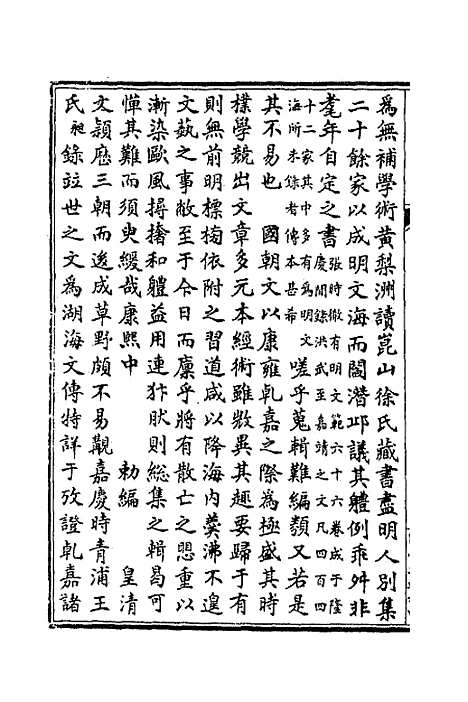 爲無補學術黃梨洲讀崑山徐氏藏書盡明人別集
二十餘家以成明文海而閻潛邱議其體例乖舛非
耄年自定之書張時徹有明文範六十六卷成于隆慶間錄洪武至嘉靖之文凡四百四
十二家其中多有爲明文海所未錄者傳本甚希嗟乎蒐輯難編纇又若是
其不易也　國朝文以康雍乾嘉之際爲極盛其時
樸學競出文章多元本經術雖㪚異其趣要歸于有
則無前明標榜依附之習道咸以降海内羹沸不遑
文蓺之事敝至于今日而廩乎將有散亡之思重以
漸染歐風撏撦和體益用連犿肰則総集之輯曷可
憚其難而須臾緩哉康熙中　勅編　皇清
文穎歷三朝而遂成草野頗不易觀嘉慶時青浦王
氏昶錄竝世之文爲湖海文傳特詳于攷證乾嘉諸